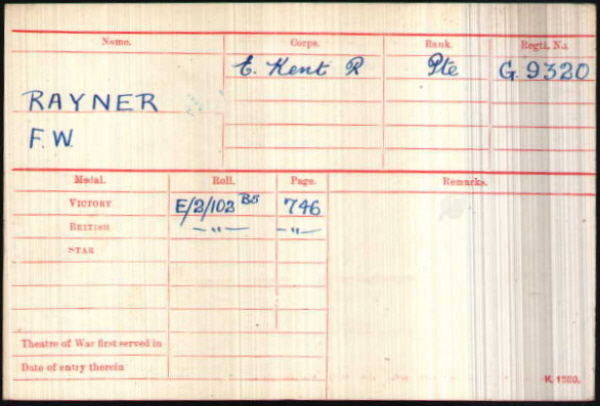 Name. Corps. Rank. Regtl. No.
E. Kent R Pte G. 9320
RAYNER
F. W.
Medal. Roll. Page. Remarks.
VICTORY E/2/102 B5 746
BRITISH —"— —"—
STAR
Theatre of War first served in
Date of entry therein
K. 1380.